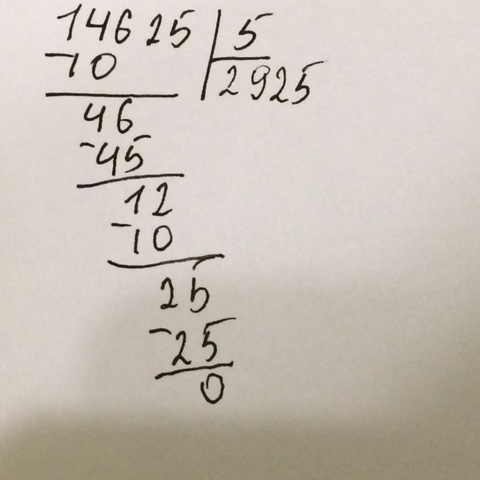 14625 5
-10 2925
46
-45
12
-10
25
-25
0